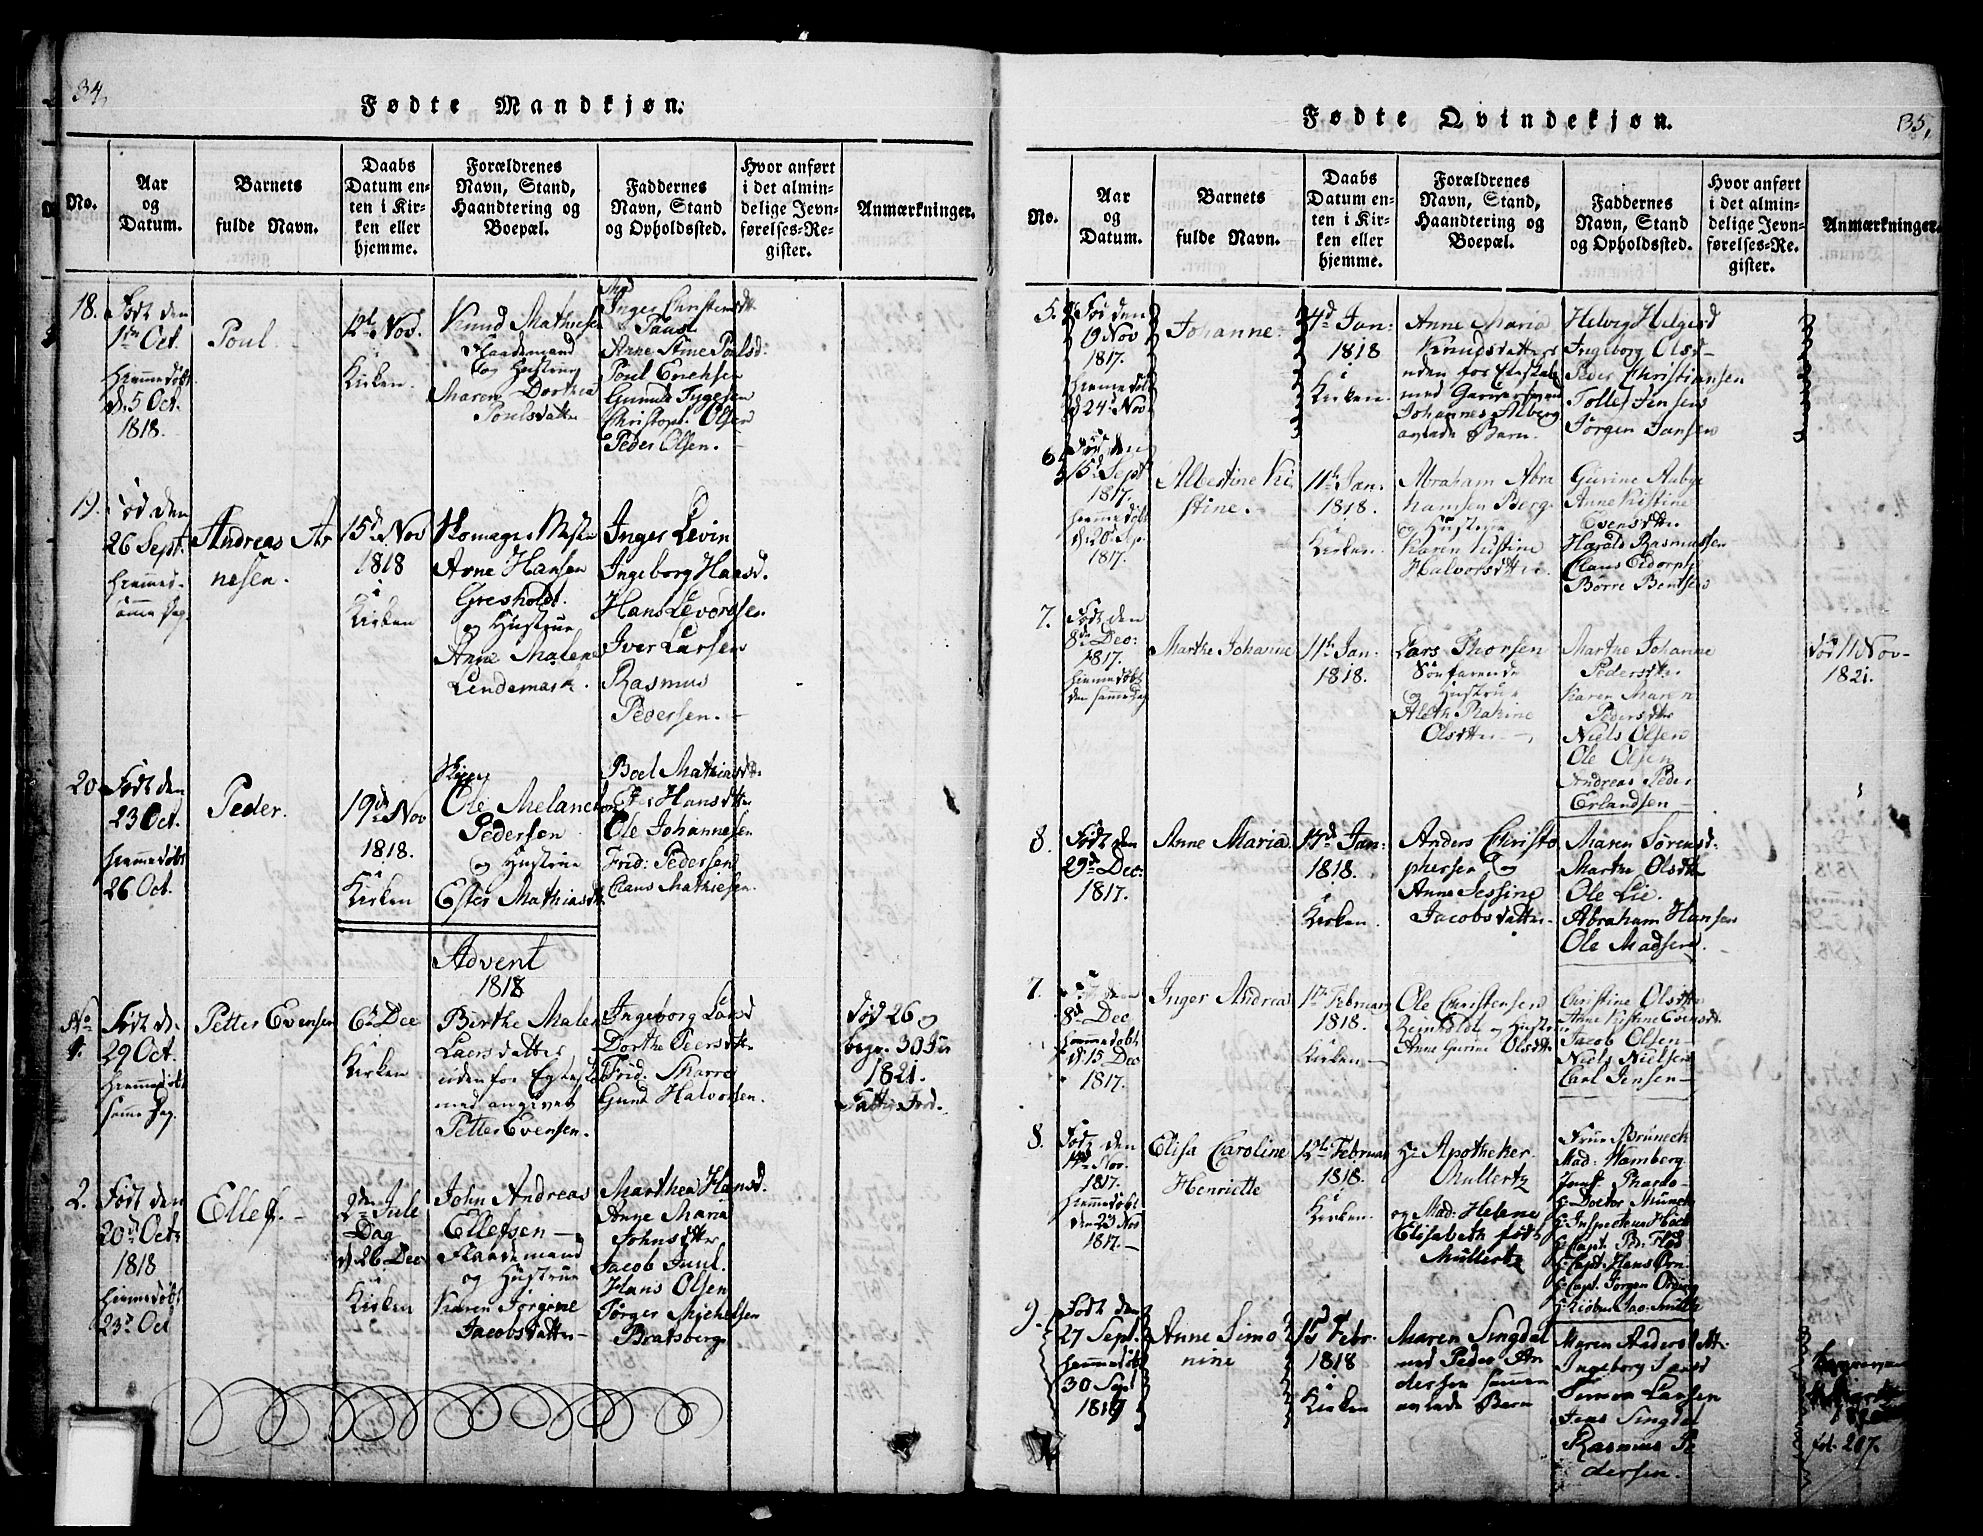 34,
Fødte Mandkjøn.
No.
Aar
og
Datum.
Barnets
fulde Navn.
Daabs
Datum en-
ten i Kir-
ken eller
hjemme.
Forældrenes
Navn, Stand,
Haandtering og
Boepæl.
Faddernes
Navn, Stand
og Opholdssted.
Hvor anført
i det almin-
delige Jevn-
førelses-Re-
gister.
Anmærkninger.
18.
Født den
1ste Oct.
hjemmedøbt
d. 5 Oct.
1818.
Poul.
12te Nov.
i
Kirken.
Knud Mathiesen
Flaademand
og Hustrue
Maren Dorthea
Poulsdatter
Inger Christensdtr
Anne Stine Poulsd.
Poul Erichsen
Gunuld Tygesen
Christoph. Olsen
Peder Olsen.
19.
Fød den
26 Sept.
hjemmed.
samme Dag.
Andreas Ar
nesen.
15d Nov
1818
i
Kirken
Arne Hansen
Gresholdt.
og Hustrue
Anne Malene
Lindemark
Inger Levin
Ingeborg Haasd.
Hans Levordsen
Iver Larsen
Rasmus
Pedersen.
20
Født den
23 Oct.
hjemmedøbt
26 Oct.
Peder.
19de Nov
1818.
i
Kirken
Ole Melanchton
Pedersen
og Hustrue
Ester Mathiasdtr
Boel Mathiasdtr
Ester Hansdtr
Ole Johannesen
Frid: Pedersen
Claus Mathiesen.
Advent
1818
No
1.
Født d.
29 Oct.
hjemmedøbt
samme Dag.
Petter Evensen
6te Dec
i
Kirken.
Berthe Malene
Laersdatter
uden for Egteskab
med angivet
Petter Evensen.
Ingeborg Land
Dorthe Peersdtr
Frid: Skarre
Gund Halvorsen.
Død 26 og
begr. 30 Ju
1821.
2.
Født den
20de Octr
1818
hjemmedøbt
23de Oct
Ellef.
2den Jule
Dag
d. 26 Dec
i
Kirken
John Andreas
Ellefsen
Flaademand
og Hustrue
Karen Jørgine
Jacobsdatter
Marthea Hansd.
Anne Maria
Johnsdtter
Jacob Juul.
Hans Olsen
Tørger Michelsen
Bratsberg
Fødte Qvindekjøn.
35,
No.
Aar
og
Datum.
Barnets
fulde Navn.
Daabs
Datum en-
ten i Kir-
ken eller
hjemme.
Forældrenes
Navn, Stand,
Haandtering og
Boepæl.
Faddernes
Navn, Stand
og Opholdssted.
Hvor anført
i det almin-
delige Jevn-
førelses-Re-
gister.
Anmærkninger.
5.
Fød den
19 Nov
1817.
hjemmedøbt
d 24de Nov.
Johanne.
4d Jan:
1818
i
Kirken.
Anne Maria
Knudsdatter
uden for Ekteskab
med
Johannes Alberg
avlede Barn.
Helvig Helgesd
Ingeborg Olsd
Peder Christiansen
Tollef Jensen
Jørgen Jansen
6.
Fød den
15d Sept
1817.
hjemmedøbt
d. 20de Sep.
1817.
Albertine Ki
stine.
11te Jan:
1818.
i
Kirken.
Abraham Abra
hamsen Berg
og Hustrue
Karen Kistine
Halvorsdtter.
Gurine Aabye
Anne Kistine
Evensdtr.
Harald Rasmussen
Claus
Børre Bentsen
7.
Født den
8de Dec:
1817.
hjemmedøbt
den samme Dag
Marthe Johanne
11te Jan:
1818.
Lars Thorsen
Søefarende
og Hustrue
Aleth Rakine
Olsdtter
Marthe Johanne
Pedersdtr.
Karen Maren
Pedersdtr
Niels Olsen
Ole Olsen
Andreas Peder
Erlandsen
død 11 Nov
1821.
8.
Født den
29de Dec:
1817.
Anne Maria
17d Jan:
1818.
i
Kirken.
Anders Christo
phersen og
Anne Sessine
Jacobsdatter.
Maren Sørensd.
Marthe Olsdtr
Ole Lie.
Abraham Hansen
Ole Madsen.
7.
Født den
8d Dec
hjemmedøbt
d. 15 Dec
1817.
Inger Andrea
1ste Februar
1818.
i
Kirken
Ole Christensen
Reinholdt og Hustrue
Anne Gurine Olsdtr
Christine Olsdtr
Anne Kistine Evensdtr.
Jacob Olsen
Niels Nielsen
Carl Jensen
8.
Født den
Nov.
1817.
hjemmedøbt
den 23 Nov
1817.
Elisa Caroline
Henriette
12te Februar
1818.
i
Kirken.
Hr Apotheker
Mullertz
og Mad: Helene
Elisabeth født
Müllertz
Frue Brüneck
Mad: Hamberg.
Hr Doctor Munch
Hr Capt. Hans Ørn
Hr Capt. Jørgen
9.
Født den
27 Sept.
hjemmedøbt
30 Sept
1817
Anne Simo
nine
15d Febr.
1818
i
Kirken
Maren Singdal
med Peder An
dersen sammen
avlede Barn
Maren Andersdattr.
Ingeborg
Simon Larsen
Jens Singdal
Rasmus Pe
dersen.
fol. 207.